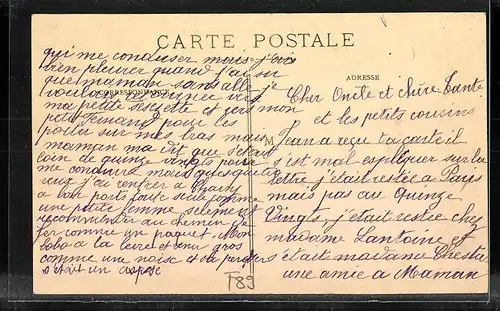 CARTE POSTALE
CORRESPONDANCE
ADRESSE
M
Cher Oncle et chère Tante
et les petits cousins
Jean a reçu ta carte il
s'est mal expliquer sur la
lettre j'était restée a Paris
mais pas au Quinze
Vingts, j'était restée chez
madame Lantoine et
c'était madame
une amie a Maman
qui me conduser mais j'ai
bien pleurer quand j'ai su
que maman sans allé je
voulais
ma petite et mon
petit Fernand pour les
porter sur mes bras mais
maman ma dit que s'était
loin de quinze vingts pour
me conduire mais
veux j'ai rentrer a
a bon port toute seule comme
une petite femme
au chemin de
fer comme un paquet. Mon
bobo a la levre et venu gros
comme une noix et sa
s'était un
F89